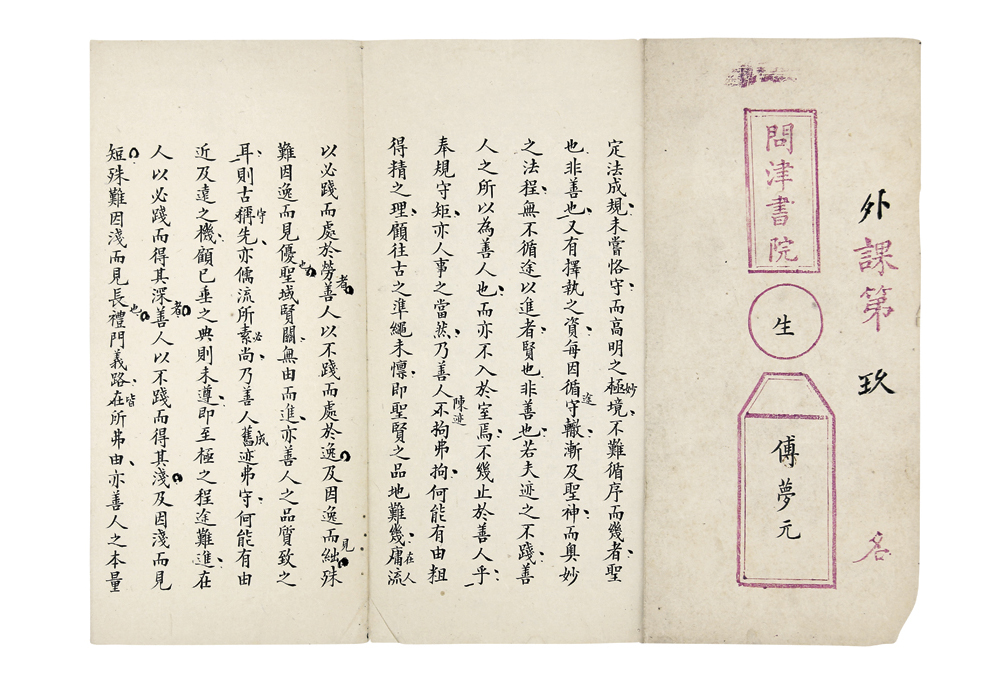 外課第玖名
問津書院
生
傅夢元
定法成規未嘗恪守而高明之極境不難循序而幾者聖
妙
也非善也又有擇執之資每因循守轍漸及聖神而奧妙
途
之法程無不循途以進者賢也非善也若夫迹之不踐善
人之所以為善人也而亦不入於室焉不幾止於善人乎
奉規守矩亦人事之當然乃善人不拘弗拘何能有由粗
陳迹
得精之理顧往古之準繩未懍即聖賢之品地難幾庸流
在人
以必踐而處於勞善人以不踐而處於逸及因逸而絀殊
者
見
難因逸而見優聖域賢關無由而進亦善人之品質致之
也
耳則古稱先亦儒流所素尚乃善人舊迹弗守何能有由
守
必
成
近及遠之機顧已垂之典則未遵即至極之程途難進在
人以必踐而得其深善人以不踐而得其淺及因淺而見
者
短殊難因淺而見長禮門義路在所弗由亦善人之本量
也
皆